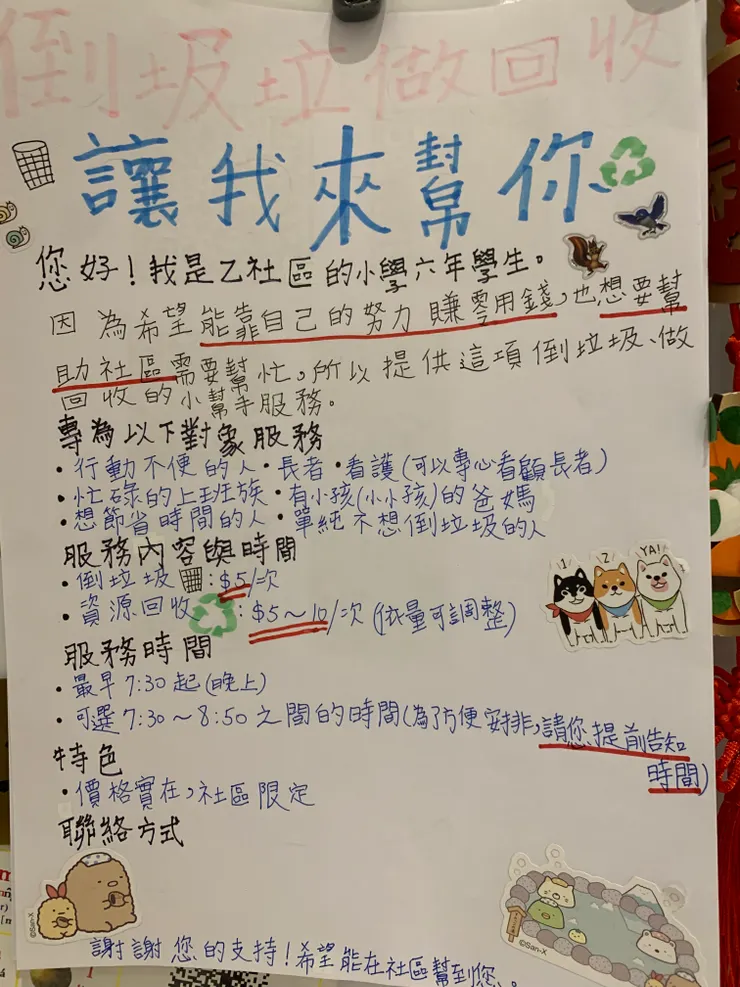 倒圾垃做回收
讓我來幫你
您好!我是乙社區的小學六年學生。
因為希望能靠自己的努力賺零用錢,也想要幫
助社區需要幫忙,所以提供這項倒垃圾、做
回收的小幫手服務。
專為以下對象服務
・行動不便的人・長者・看護(可以專心看顧長者)
・忙碌的上班族・有小孩(小小孩)的爸媽
・想節省時間的人・單純不想倒垃圾的人
服務內容與時間
・倒垃圾:$5/次
・資源回收:$5~10/次(依量可調整)
1! 2! YA!
服務時間
・最早7:30起(晚上)
・可選7:30~8:50之間的時間(為了方便安排,請您提前告知
時間)
特色
・價格實在,社區限定
聯絡方式
©San-X
©San-X
謝謝您的支持!希望能在社區幫到您。